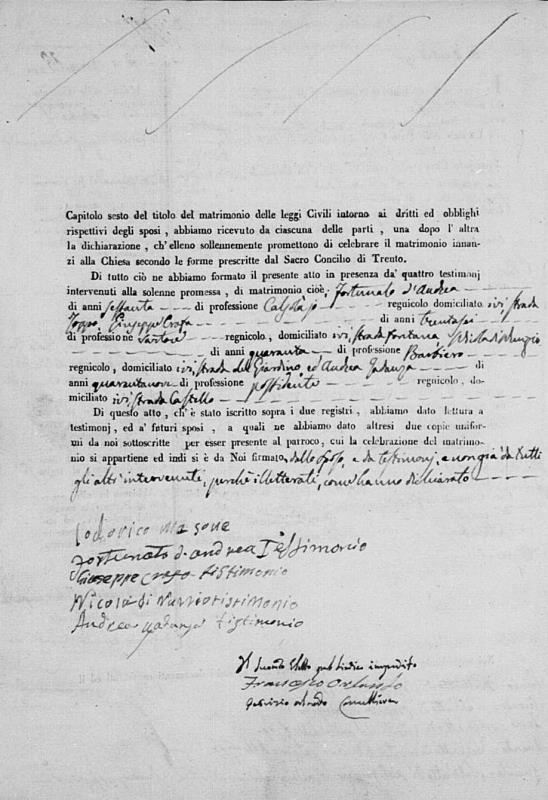 Capitolo sesto del titolo del matrimonio delle leggi Civili intorno ai dritti ed obblighi
rispettivi degli sposi, abbiamo ricevuto da ciascuna delle parti, una dopo l' altra
la dichiarazione, ch'elleno sollennemente promettono di celebrare il matrimonio innan-
zi alla Chiesa secondo le forme prescritte dal Sacro Concilio di Trento.
Di tutto ciò ne abbiamo formato il presente atto in presenza da' quattro testimonj
intervenuti alla solenne promessa, di matrimonio cioè, Fortunato d'Andrea
di anni sessanta di professione Calzolajo regnicolo domiciliato ivi, strada
Toppo, Giuseppe Crafa di anni trentasei
di professione sartore regnicolo, domiciliato ivi, strada Fontana Nicola di Nunzio
di anni quaranta di professione Barbiero
regnicolo, domiciliato ivi, strada del Giardino, ed Andrea di
anni quarantanove di professione possidente regnicolo, do-
miciliato ivi, strada Castello
Di questo atto, ch'è stato iscritto sopra i due registri, abbiamo dato lettura a
testimonj, ed a' futuri sposi, a quali ne abbiamo dato altresì due copie unifor-
mi da noi sottoscritte per esser presente al parroco, cui la celebrazione del matrimo-
nio si appartiene ed indi si è da Noi firmato, dallo sposo, e da testimonj, e non già da tutti
gli altri intervenuti, perchè illetterati, come hanno dichiarato
Lodovico Masone
Fortunato d. andrea Testimonio
Giuseppe crafa tistimonio
Nicola di Nunzio tistimonio
Andrea tistimonio
Il Secondo Eletto pel Sindico impedito
Francesco Orlando
Orlando Cancelliere